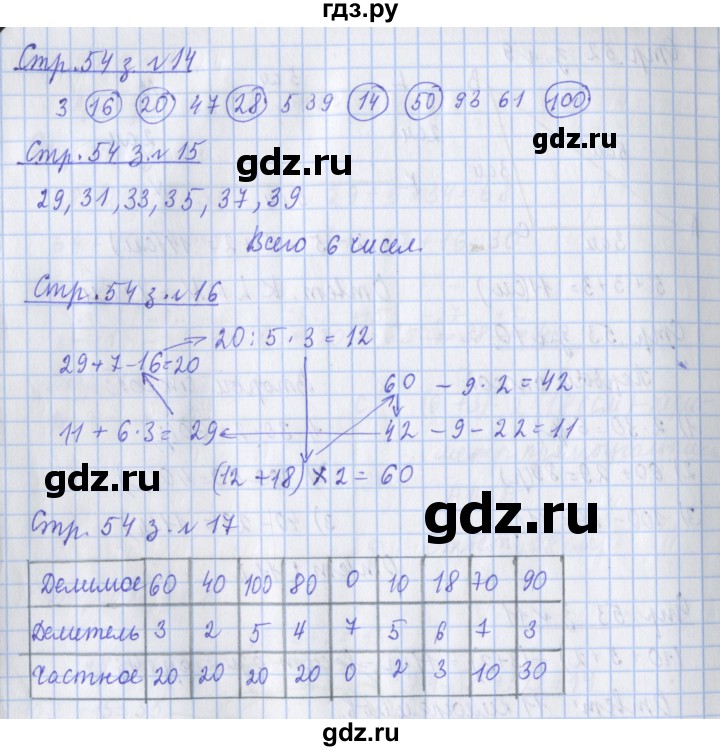 гдз.ру
Стр. 54 з. №14
3 16 20 47 28 5 39 14 50 93 61 100
gdz.ru
Стр. 54 з. № 15
gdz.ru
29, 31, 33, 35, 37, 39
Всего 6 чисел.
Стр. 54 з. №16
20 : 5 · 3 = 12
29 + 7 - 16 = 20
60 - 9 · 2 = 42
11 + 6 · 3 = 29
42 - 9 - 22 = 11
(12 + 18) × 2 = 60
gdz.ru
gdz.ru
Стр. 54 з. № 17
Делимое 60 40 100 80 0 10 18 70 90
Делитель 3 2 5 4 7 5 6 7 3
Частное 20 20 20 20 0 2 3 10 30
gdz.ru
gdz.ru